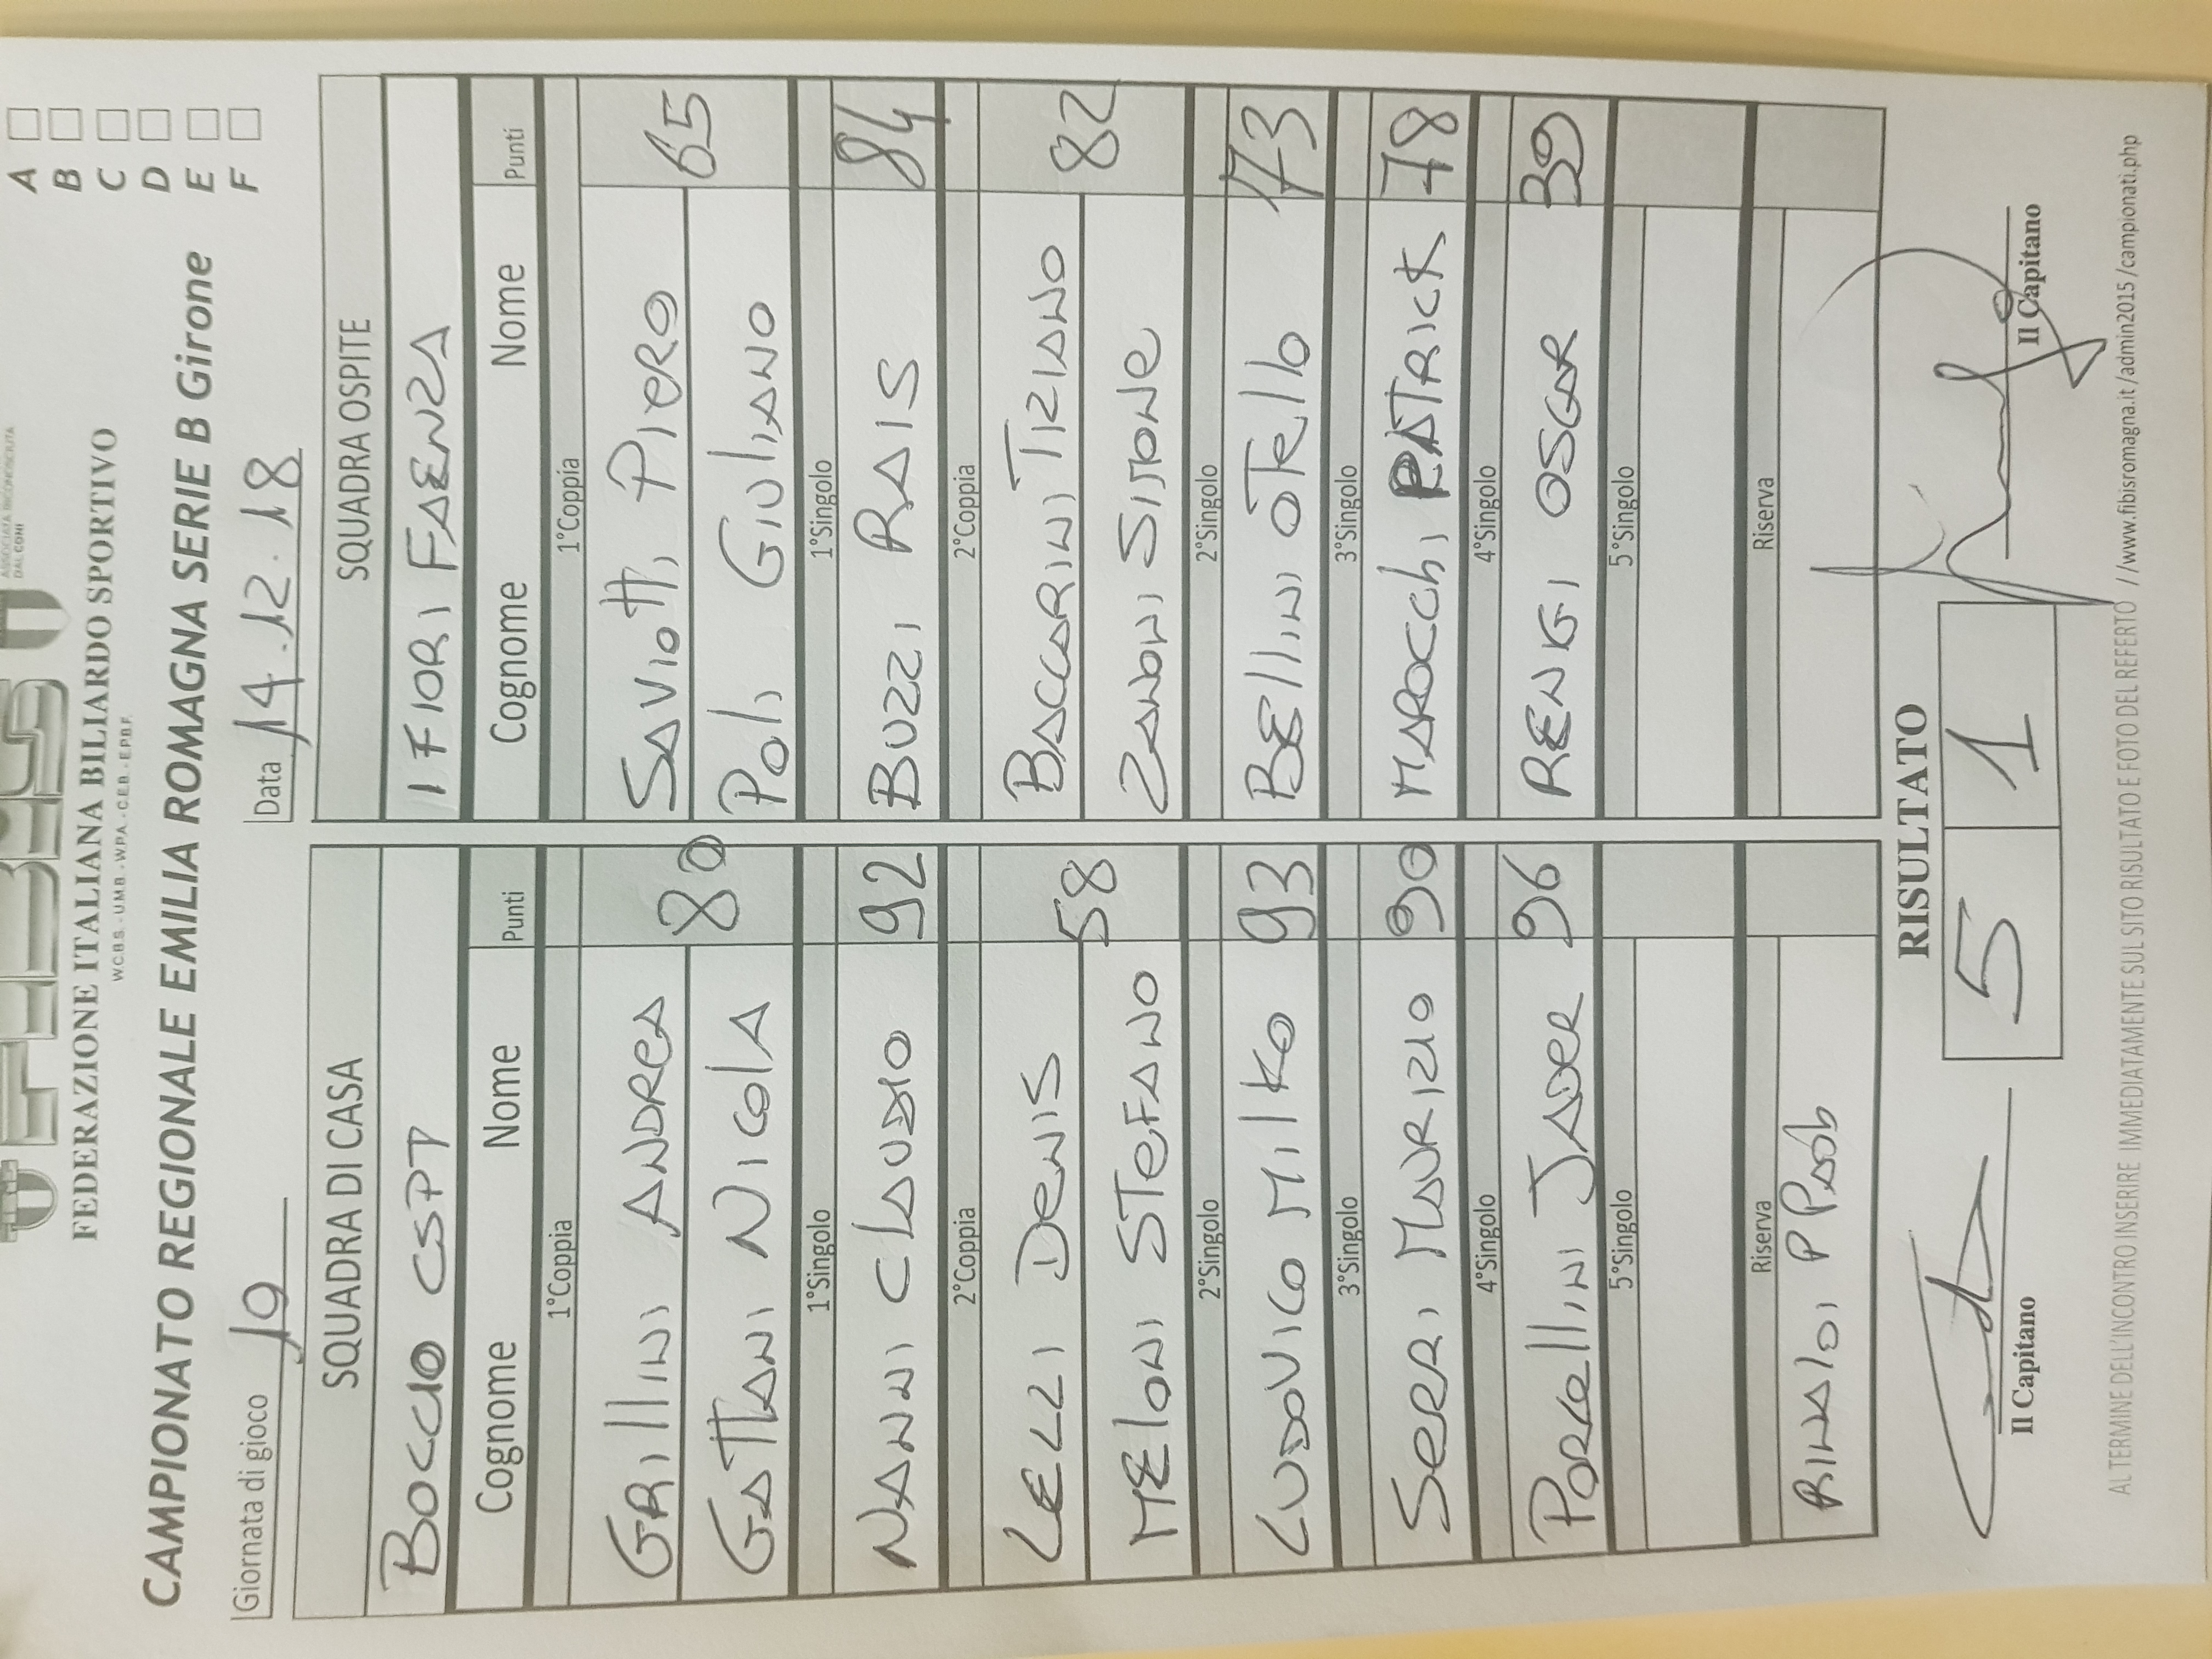 FIBiS
ASSOCIATA RICONOSCIUTA
DAL CONI
FEDERAZIONE ITALIANA BILIARDO SPORTIVO
W.C.B.S. - U.M.B. - W.P.A. - C.E.B. - E.P.B.F.
CAMPIONATO REGIONALE EMILIA ROMAGNA SERIE B Girone
A
B
C
D
E
F
Giornata di gioco 10
Data 14.12.18
SQUADRA DI CASA SQUADRA OSPITE
BOCCIO CSPT I FIORI FAENZA
Cognome Nome Punti Cognome Nome Punti
1°Coppia 1°Coppia
GRILLINI ANDREA SAVIOTTI PIERO
80 65
GATTANI NICOLA POLI GIULIANO
1°Singolo 1°Singolo
NANNI CLAUDIO 92 BUZZI RAIS 84
2°Coppia 2°Coppia
LELLI DENIS BACCARINI TIZIANO
58 82
MELONI STEFANO ZANONI SIMONE
2°Singolo 2°Singolo
LUDOVICO MILKO 93 BELLINI OTELLO 73
3°Singolo 3°Singolo
SERRI MAURIZIO 90 MAROCCHI PATRICK 78
4°Singolo 4°Singolo
PORCELLINI JADER 96 RENGI OSCAR 39
5°Singolo 5°Singolo
Riserva Riserva
RINALDI
RISULTATO
5 1
Il Capitano Il Capitano
AL TERMINE DELL'INCONTRO INSERIRE IMMEDIATAMENTE SUL SITO RISULTATO E FOTO DEL REFERTO //www.fibisromagna.it/admin2015/campionati.php